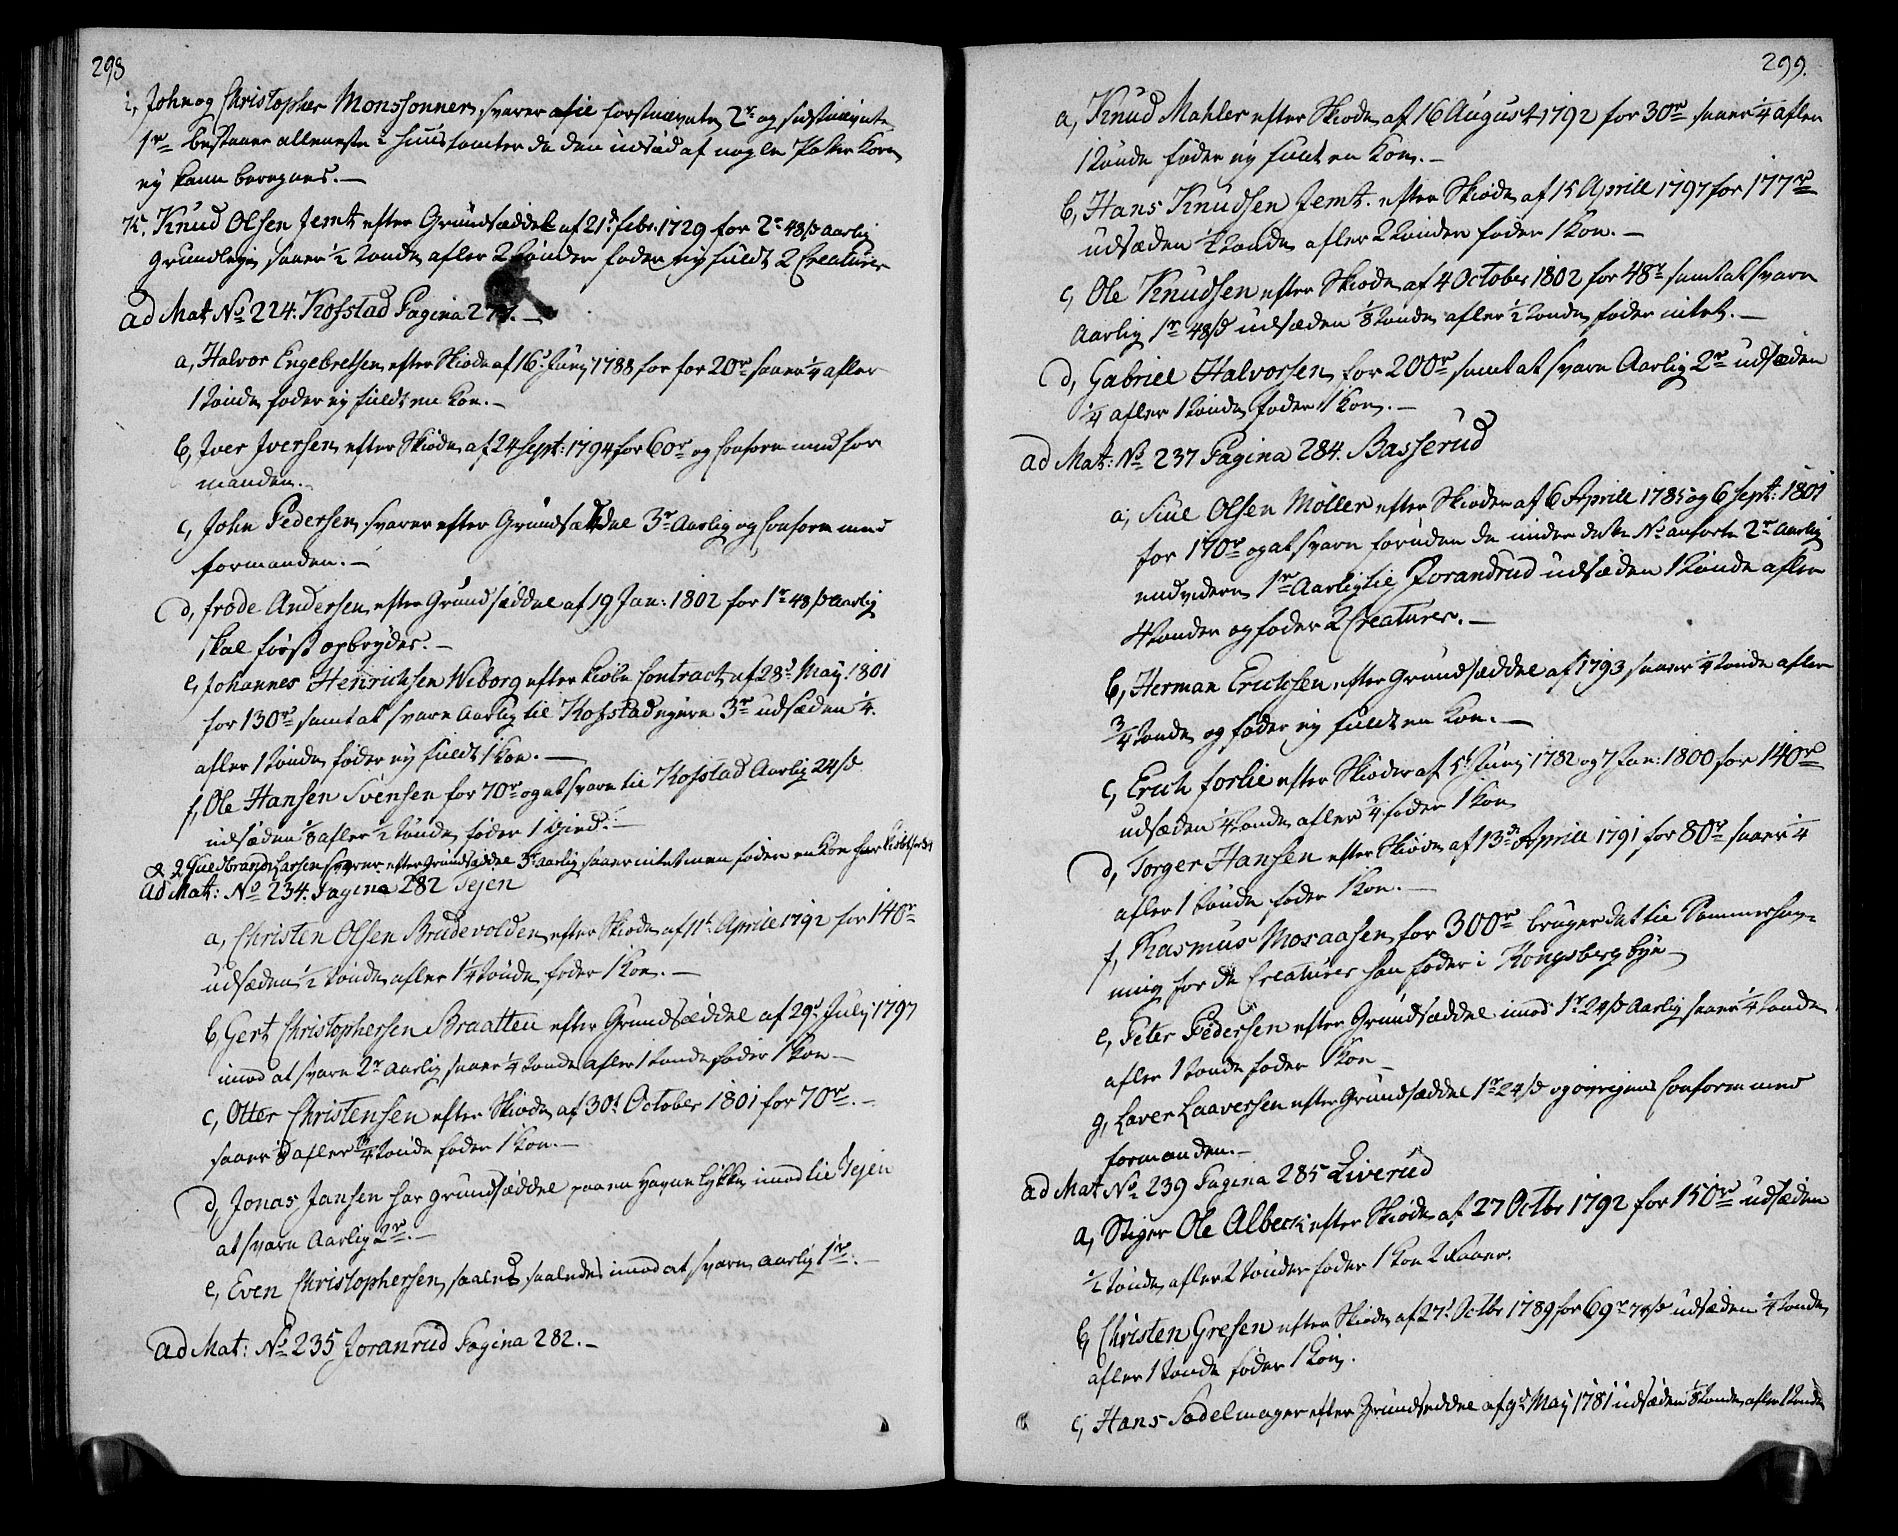 298
i, John og Christopher Monssønner, svarer alle forstnævnte 2r og sidstnævnte
1r bestaaer alleneste i Huustomter da den udsæd af nogle Potter Korn
ey kann beregnes.—
K. Knud Olsen Jemt efter Grundsæddel af 21d Febr. 1729 for 2r 48 s aarlig
grundleje, saaer 1/2 Tønde afler 2 Tønder føder ey fuldt 2 Creaturer
ad Mat No 224. Kofstad Pagina 277.—
a, Halvor Engebretsen, efter Skiøde af 16d Juny 1788 for for 20r saaer 1/4 afler
1 Tønde føder ey fuldt en Koe.—
b, Iver Iversen, efter Skiøde af 24 Sept: 1794 for 60r og conform med for
manden.
c, John Pedersen, svarer efter Grundsæddel 3r Aarlig og Conform med
formanden.—
d, Frode Andersen, efter Grundsæddel af 19 Jan: 1802 for 1r 48 s Aarlig
skal først opbrydes.—
e, Johannes Henrichsen Wiborg efter Kiøbe Contract af 28d May 1801
for 130r samt at svare aarlig til Kofstad eyere 3r udsæden 1/4.
afler 1 Tønde føder ey fuldt 1 Koe.—
f, Ole Hansen Svensen for 70r og at svare til Kofstad Aarlig 24 s
udsæden 1/8 afler 1/2 Tønde, føder 1 Gied.—
& g Guldbrand Larsen svarer efter Grundsæddel 3r aarlig saaer intet men føder en Koe har
Ad Mat: No 234. Pagina 282 Tejen
a, Christen Olsen Brudevolden, efter Skiøde af 11t Aprill 1792 for 140r
udsæden 1/2 Tønde, afler 1 1/4 Tønde, føder 1 Koe.—
b, Gert Christophersen Braatten efter Grundsæddel af 29d July 1797
imod at svare 2r aarlig saaer 1/4 Tønde afler 1 Tønde føder 1 Koe—
c, Otter Christensen efter Skiøde, af 30t October 1801 for 70r.—
saaer 1/8 afler 3/4 Tønde føder 1 Koe.—
d, Jonas Jansen har grundsæddel paa en Havne Løkke, imod til Tejen
at svare Aarlig 2r.—
e, Even Christophersen, saaled saaledes imod at svare, aarlig 1r.—
ad Mat: No 235 Joranrud Pagina 282.—
299.
a, Knud Mahler efter Skiøde af 16 August 1792 for 30r saaer 1/4 afler
1 Tønde føder ey fuldt en Koe.—
b, Hans Knudsen Jemt. efter Skiøde af 15 Aprill 1797 for 177r
udsæden 1/2 Tønde afler 2 Tønder føder 1 Koe.—
c, Ole Knudsen efter Skiøde af 4 October 1802 for 48r samt at svare
Aarlig 1r 48 s udsæden 1/8 Tønde, afler 1/2 Tønde, føder intet.—
d, Gabriel Halvorsen, for 200r samt at svare Aarlig 2r udsæden
1/4 afler 1 Tønde, føder 1 Koe.—
ad Mat: No 237 Pagina 284. Basserud
a, Siul Olsen Møller efter Skiøder af 6 Aprill 1785 og 6 Sept: 1801
for 170r og at svare foruden de under dette No anførte 2r Aarlig
endvidere 1r Aarlig til Jorandrud udsæden 1 Tønde afler
4 Tønder og føder 2 Creaturer.—
b, Herman Erichsen efter Grundsæddel af 1793 saaer 1/4 Tønde afler
3/4 Tønde, og føder ey fuldt en Koe.—
c, Erich Forlie efter Skiøder af 5t Juny 1782 og 7 Jan: 1800 for 140r
udsæden 1/4 Tønde afler 3/4 føder 1 Koe
d, Torger Hansen efter Skiøde af 13de Aprill 1791 for 80r saaer 1/4
afler 1 Tønde føder 1 Koe.—
f, Rasmus Mosaasen, for 300r bruger det til Sommerhav-
ning for de Creaturer han føder i Kongsberg bye
e, Peter Pedersen efter Grundsæddel imod 1r 24 s Aarlig saaer 1/4 Tønde
afler 1 Tønde føder 1 Koe
g, Laver Laaversen efter Grundsæddel 1r 24 s og øvrigens Conform med
formanden.—
ad Mat No 239 Pagina 285 Liverud
a, Stiger Ole Albeck efter Skiøde af 27 Octbr 1792 for 150r udsæden
1/2 Tønde, afler 2 Tønder føder 1 Koe 2 Faaer.
b, Christen Gresen efter Skiøde af 27d Octbr 1789 for 69r 74 s udsæden 1/4 Tønde
afler 1 Tønde føder 1 Koe.
c, Hans Sadelmager efter Grundseddel af 9d May 1781 udsæden 1/8 Tønde, afler 1 Tønde